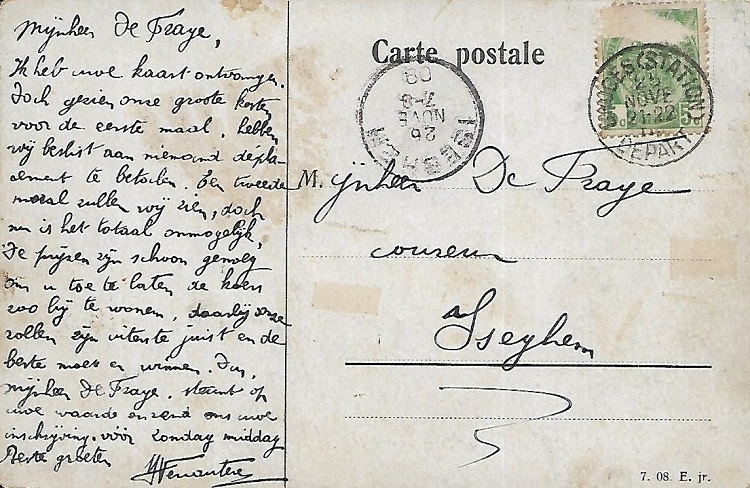 Mijnheer De Fraye,
Ik heb uwe kaart ontvangen.
Doch gezien onze groote kosten
voor de eerste maal, hebben
wij beslist aan niemand dépla-
cement te betalen. Een tweede
maal zullen wij zien, doch
nu is het totaal onmogelijk,
De prijzen zijn schoon genoeg
om u toe te laten de koers
zoo bij te wonen, daarbij onze
rollen zijn uiterste juist en de
beste moet er winnen. Dus,
Mijnheer De Fraye, steunt op
uwe waarde en zend ons uwe
inschrijving vóór Zondag middag
Beste groeten
Carte postale
ISEGHEM
26
NOVE
7-8
09
(STATION)
NOVE
21-22
DEPART
5
M. ijnheer De Fraye
coureur
Iseghem
7. 08. E. jr.